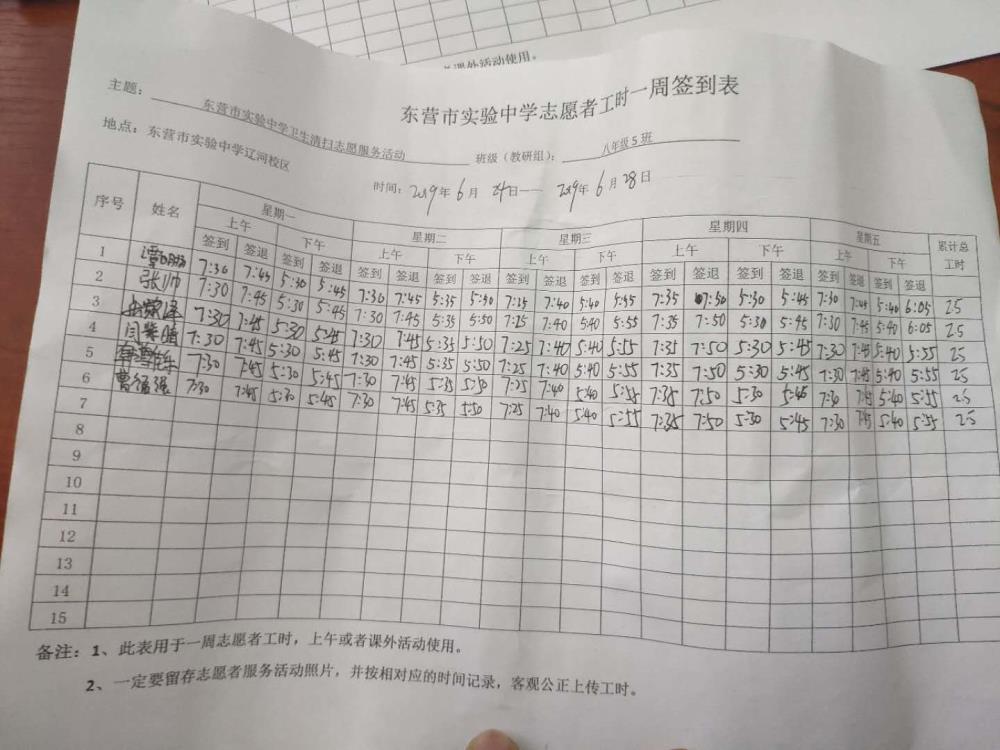 课外活动使用。
东营市实验中学志愿者工时一周签到表
主题： 东营市实验中学卫生清扫志愿服务活动 班级（教研组）： 八年级5班
地点：东营市实验中学辽河校区
时间：2019年6月24日——2019年6月28日
序号 姓名 星期一 星期二 星期三 星期四 星期五 累计总工时
上午 下午 上午 下午 上午 下午 上午 下午 上午 下午
签到 签退 签到 签退 签到 签退 签到 签退 签到 签退 签到 签退 签到 签退 签到 签退 签到 签退 签到 签退
1 7:30 7:45 5:30 5:45 7:30 7:45 5:35 5:50 7:25 7:40 5:40 5:55 7:35 7:50 5:30 5:45 7:30 7:45 5:40 6:05 25
2 张帅 7:30 7:45 5:30 5:45 7:30 7:45 5:35 5:50 7:25 7:40 5:40 5:55 7:35 7:50 5:30 5:45 7:30 7:45 5:40 6:05 25
3 7:30 7:45 5:30 5:45 7:30 7:45 5:35 5:50 7:25 7:40 5:40 5:55 7:35 7:50 5:30 5:45 7:30 7:45 5:40 5:55 25
4 7:30 7:45 5:30 5:45 7:30 7:45 5:35 5:50 7:25 7:40 5:40 5:55 7:35 7:50 5:30 5:45 7:30 7:45 5:40 5:55 25
5 7:30 7:45 5:30 5:45 7:30 7:45 5:35 5:50 7:25 7:40 5:40 5:55 7:35 7:50 5:30 5:45 7:30 7:45 5:40 5:55 25
6 7:30 7:45 5:30 5:45 7:30 7:45 5:35 5:50 7:25 7:40 5:40 5:55 7:35 7:50 5:30 5:45 7:30 7:45 5:40 5:55 25
7
8
9
10
11
12
13
14
15
备注：1、此表用于一周志愿者工时，上午或者课外活动使用。
2、一定要留存志愿者服务活动照片，并按相对应的时间记录，客观公正上传工时。